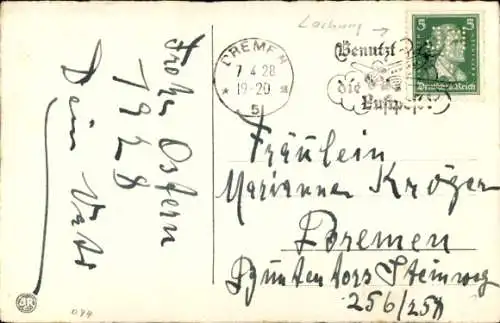 Frohe Ostern
1928
Dein Vater
Lochung
BREMEN
7 4 28
19-20
* 5 *
Benutzt
die
Luftpost
5 5
Deutsches Reich
Fräulein
Marianne Kröger
Bremen
Buntentors Steinweg
256/258
044